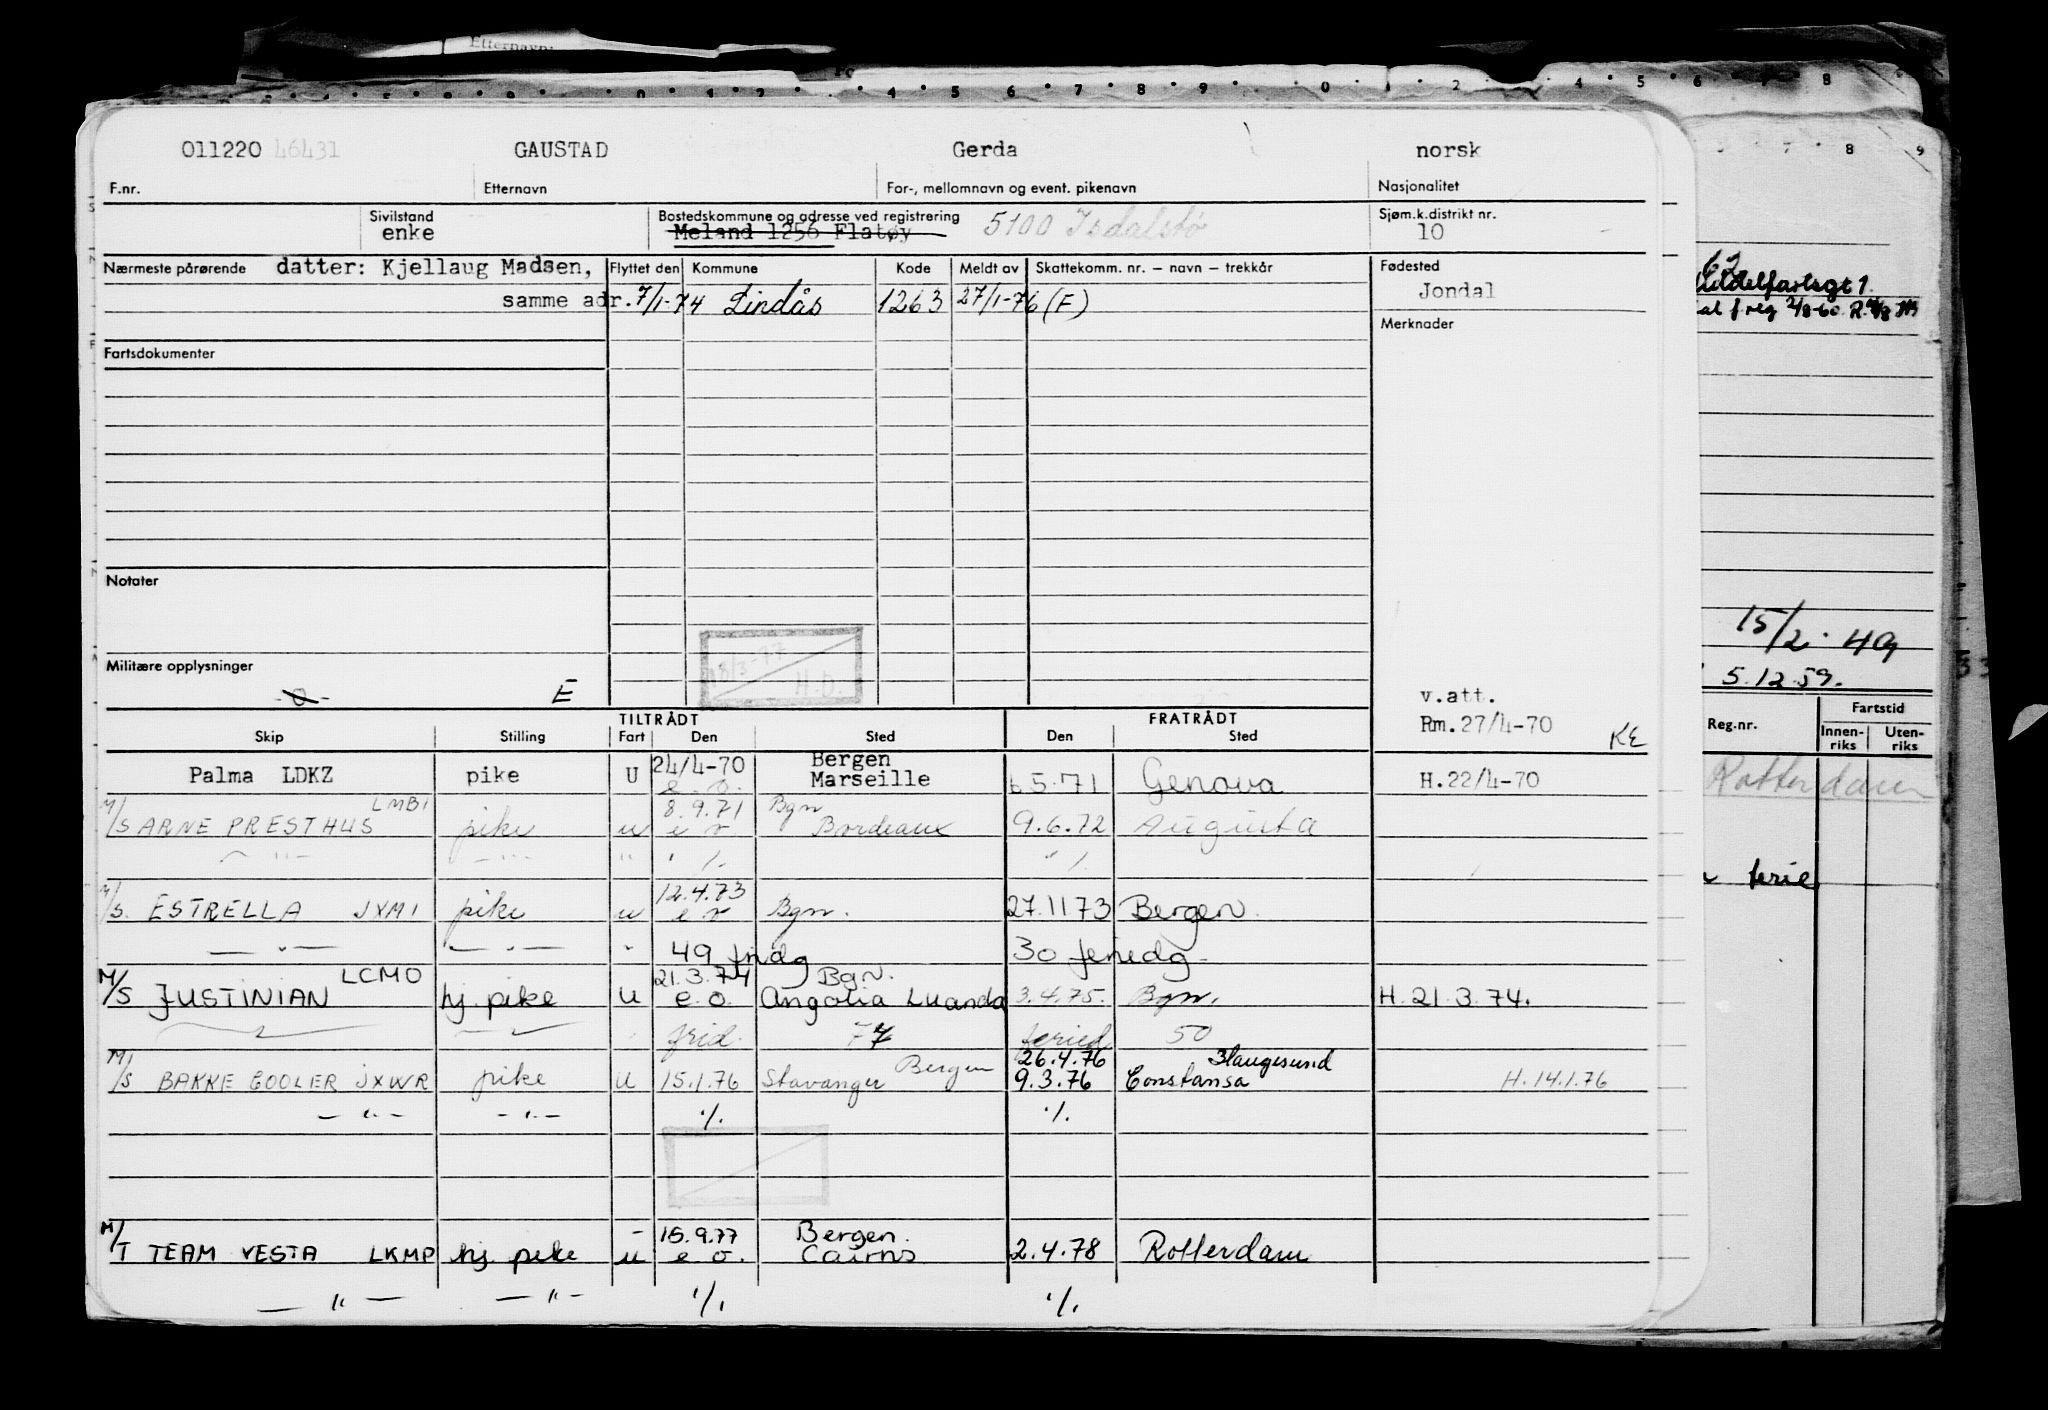 Etternavn:
011220 46431 GAUSTAD Gerda norsk
F.nr. Etternavn For-, mellomnavn og event. pikenavn Nasjonalitet
Sivilstand Bostedskommune og adresse ved registrering Sjøm.k.distrikt nr.
enke Meland 1256 Flatøy 5100 Isdalstø 10
Nærmeste pårørende datter: Kjellaug Madsen, Flyttet den Kommune Kode Meldt av Skattekomm. nr. – navn – trekkår Fødested
samme adr. 7/1-74 Lindås 1263 27/1-76 (F) Jondal
Merknader
Fartsdokumenter
Notater
18/3-77
H.D.
Militære opplysninger
E
v.att.
Rm.27/4-70 KE
TILTRÅDT FRATRÅDT
Skip Stilling Fart Den Sted Den Sted
Palma LDKZ pike U 24/4-70 e.o. Bergen Marseille 6 5.71 Genova H.22/4-70
M/S ARNE PRESTHUS LMBI pike u 8.9.71 e o Bgn Bordeaux 9.6.72 Augusta
— " — — " — " ·/. ·/.
M/S. ESTRELLA JXMI pike u 12.4.73 e o Bgn. 27.11 73 Bergen
— " — — " — " 49 fridg 30 feriedg
M/S JUSTINIAN LCMO hj. pike u 21.3.74 e.o. Bgn. Angolia Luanda 3.4.75. Bgn. H. 21.3.74.
frid. 77 feried 50
M/S BAKKE COOLER JXWR pike u 15.1.76 Stavanger Bergen 26.4.76 Haugesund
9.3.76 Constansa H.14.1.76
— " — — " — ·/. ·/.
M/T TEAM VESTA LKMP hj. pike u 15.9.77 e.o. Bergen. Cairns 2.4.78 Rotterdam
— " — — " — ·/. ·/.
Middelfartsgt 1.
15/2. 49
5.12.59.
Reg.nr. Fartstid
Innen-riks Uten-riks
Rotterdam
ferie